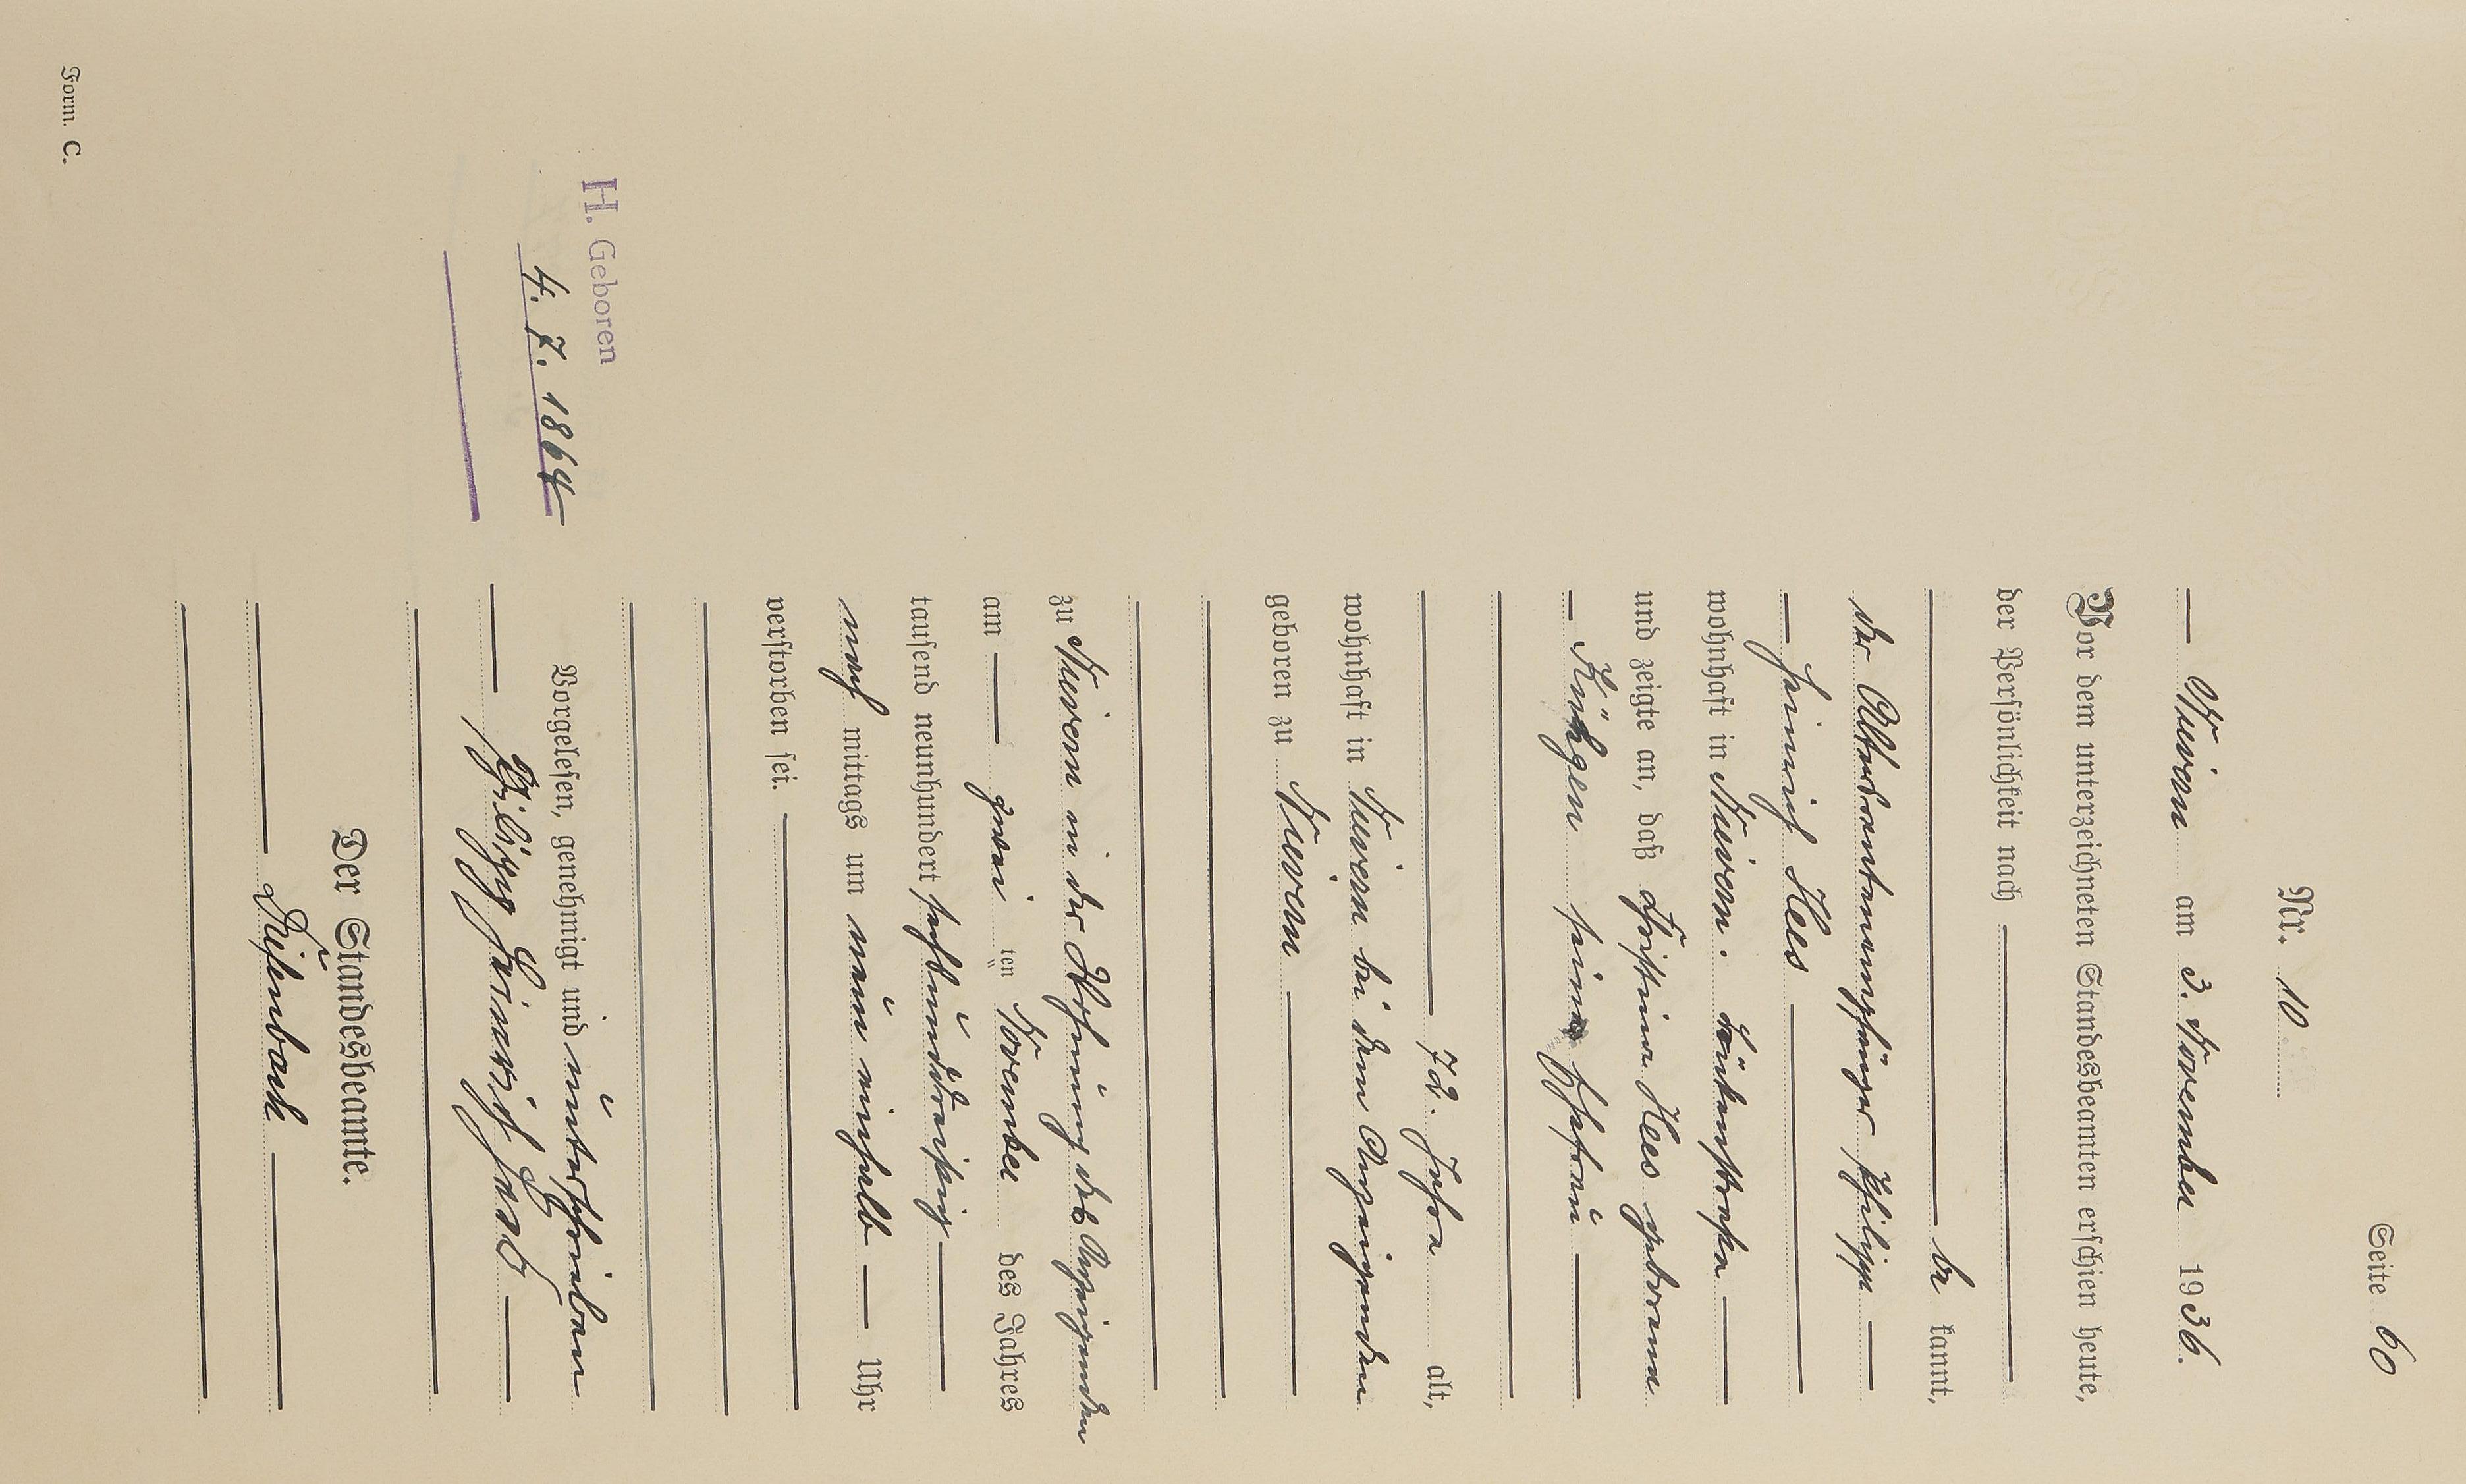 Seite 60
Nr. 10
Nievern am 3. November 1936.
Vor dem unterzeichneten Standesbeamten erschien heute,
der Persönlichkeit nach
be kannt,
der Altersrentenempfänger Philipp
Heinrich Hees
wohnhaft in Nievern.
und zeigte an, daß Christina Hees geborene
seine Ehefrau
72. Jahre alt,
wohnhaft in Nievern bei dem Anzeigenden
geboren zu Nievern
zu Nievern in der Wohnung des Anzeigenden
am zwei ten November des Jahres
tausend neunhundert sechsunddreißig
nach mittags um neun einhalb Uhr
verstorben sei.
Vorgelesen, genehmigt und unterschrieben
Philipp Heinrich Hees
Der Standesbeamte.
H. Geboren
4. 7. 1864
Form. C.